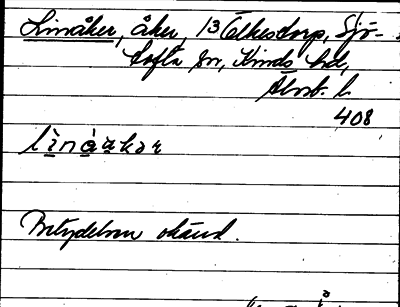 Linåker, åker, 13 Ölkestorp, Sjö-
tofta sn, Kinds hd,
Älvsb. l.
408
lìnàakər
Betydelsen okänd.